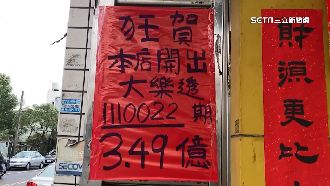 SETN三立新聞網
狂賀
本店開出
大樂透
1110022期
3.49億
財源更比
SECOM